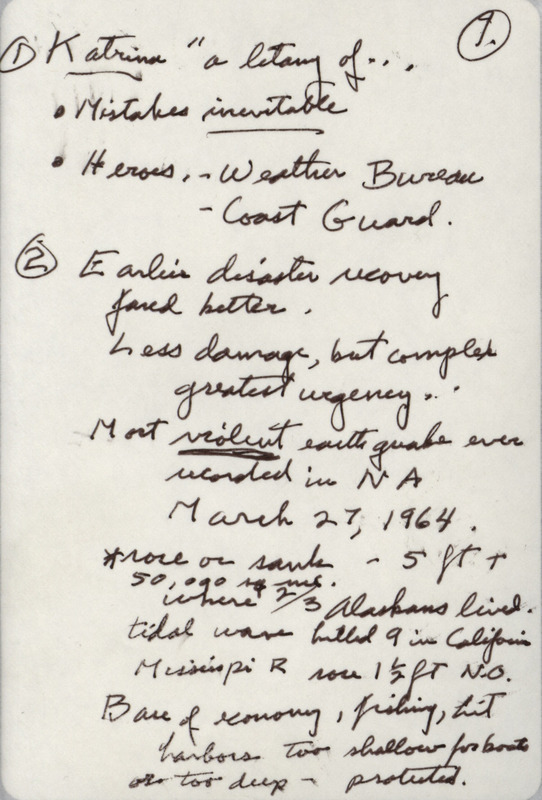 9.
① Katrina "a litany of...
• Mistakes inevitable
• Heroes. - Weather Bureau
- Coast Guard.
② Earlier disaster recovery
fared better.
Less damage, but complex
greatest urgency..
Most violent earthquake ever
recorded in NA
March 27, 1964.
*rose or sank - 5 ft +
50,000 sq mi.
where 2/3 Alaskans lived.
tidal wave killed 9 in Californ
Missispi R rose 1 1/2 ft N.O.
Base of economy, fishing, hit
harbors too shallow for boats
or too deep - protected.